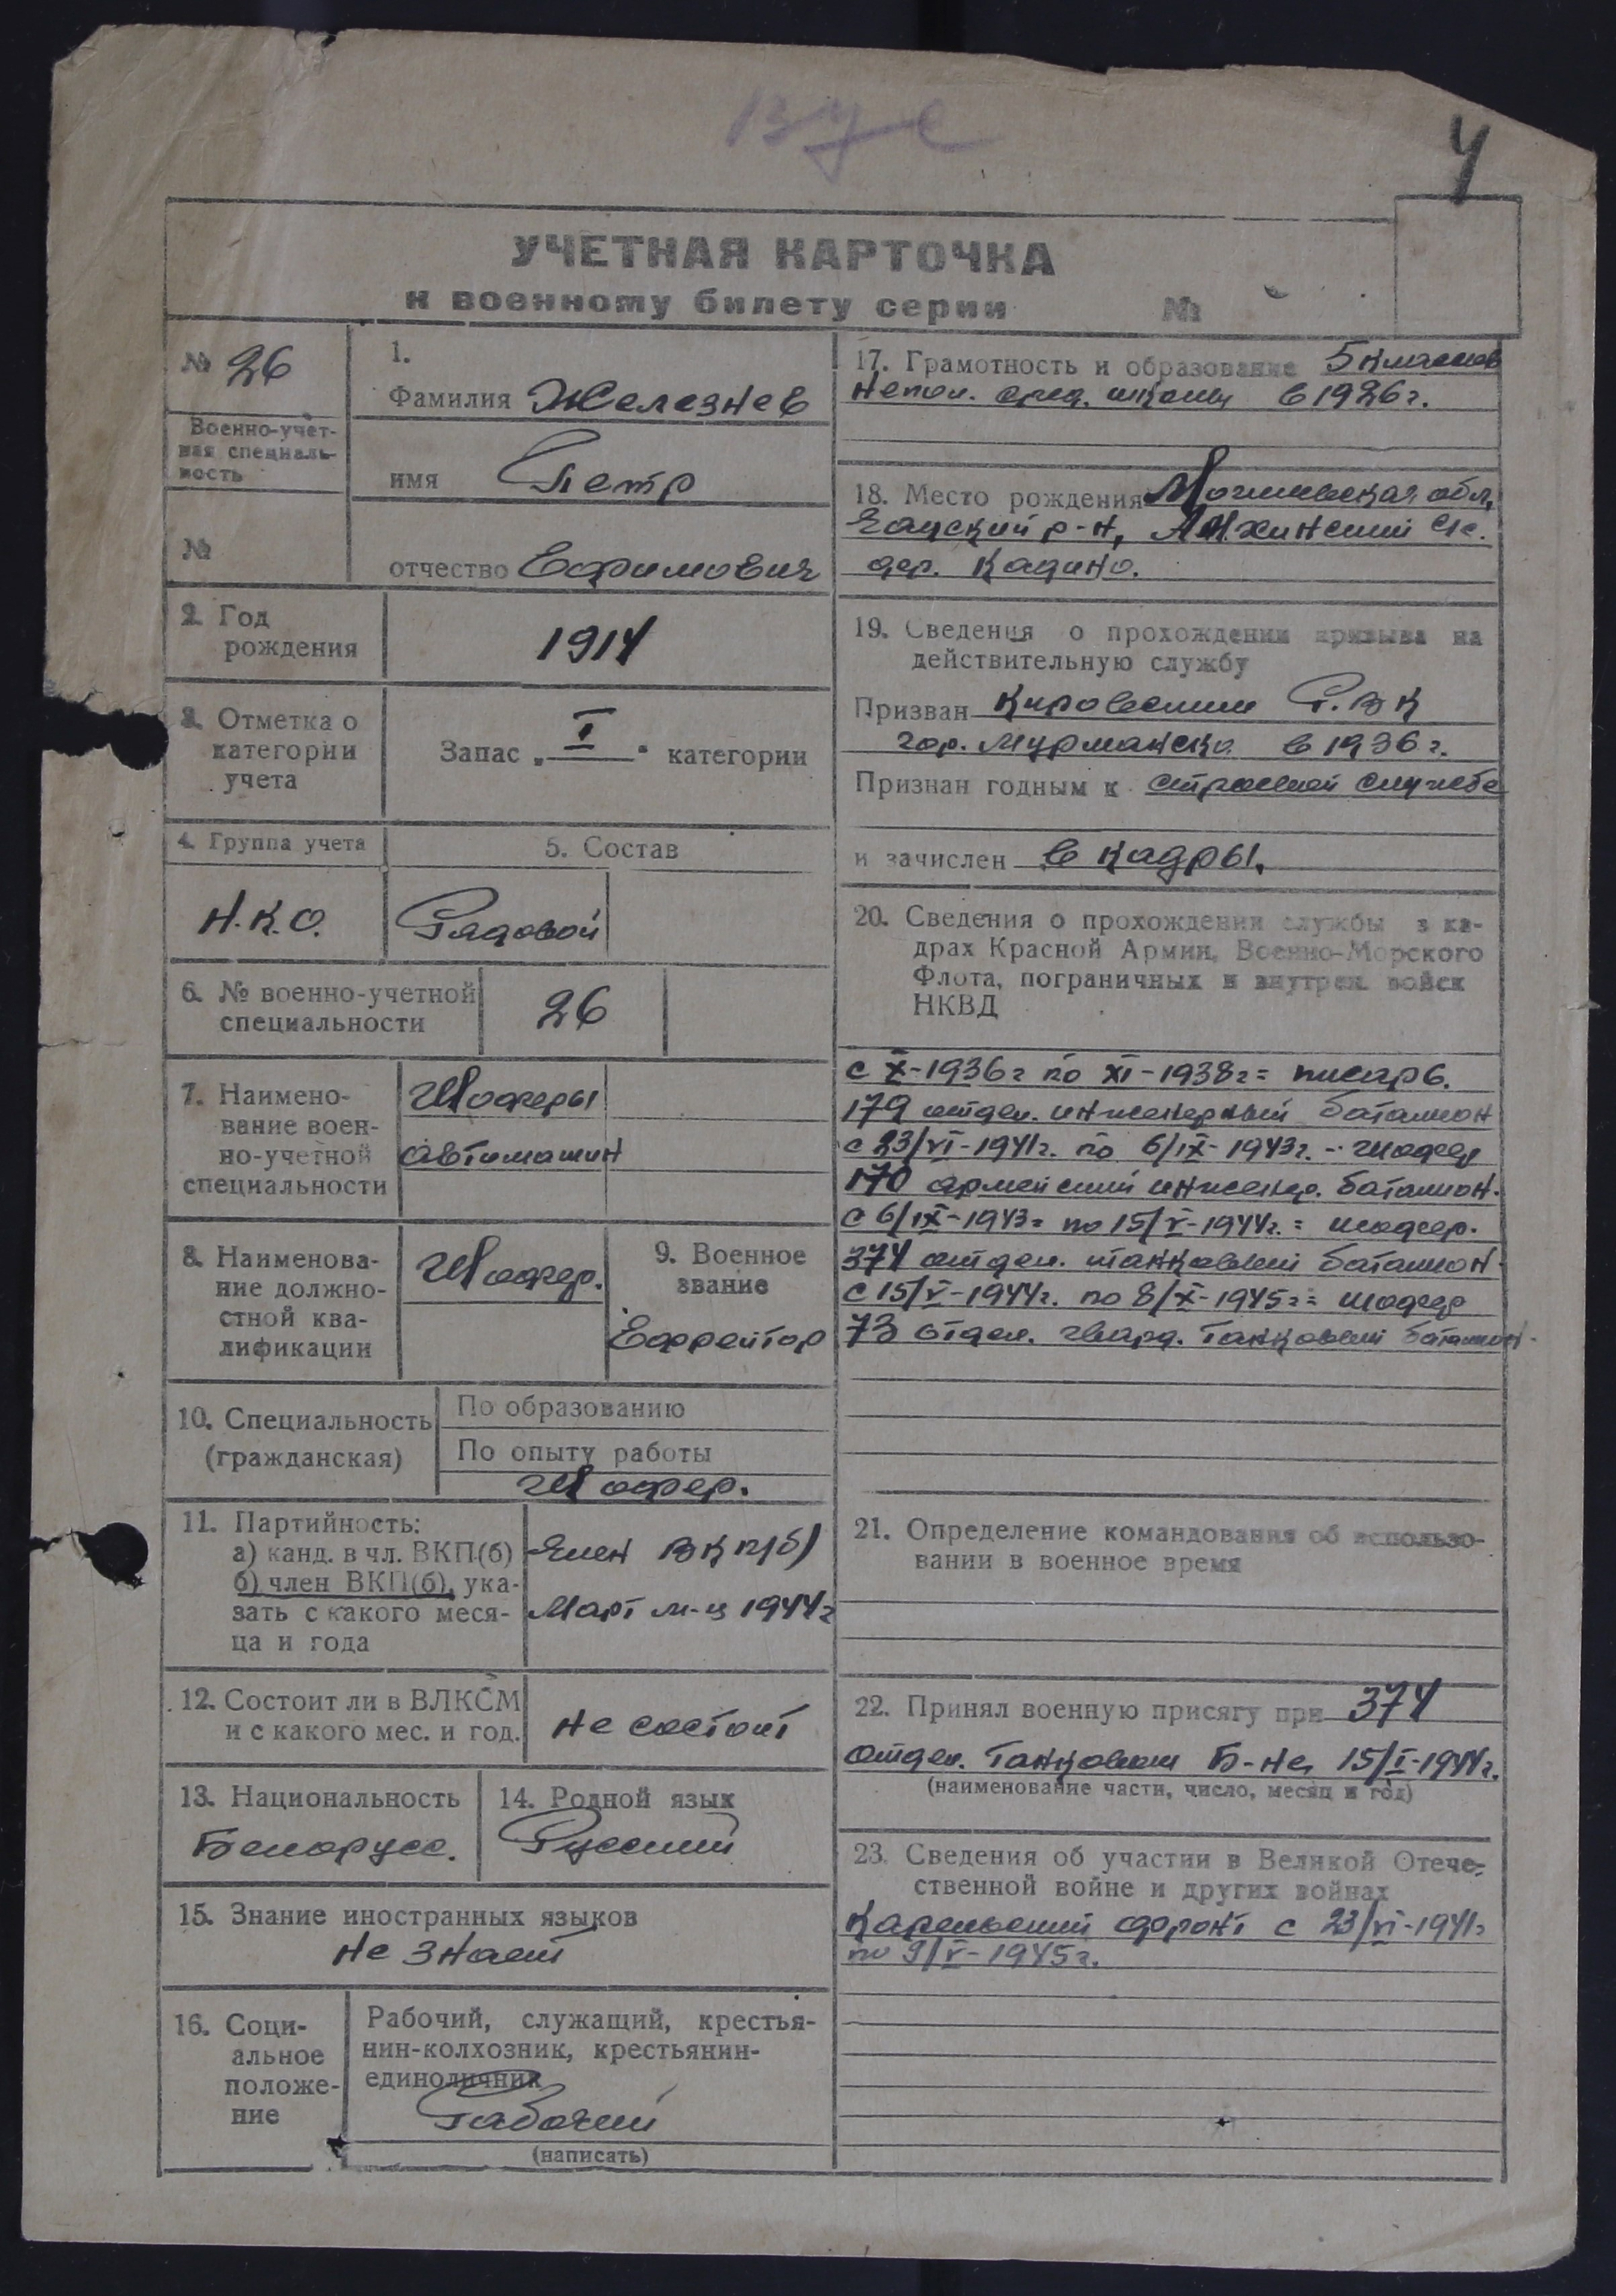 ВУС
4
УЧЕТНАЯ КАРТОЧКА
к военному билету серии №
№ 26
Военно-учет-
ная специаль-
ность
№
1.
Фамилия Железнев
имя Петр
отчество Ефимович
2. Год
рождения
1914
3. Отметка о
категории
учета
Запас „ I " категории
4. Группа учета
5. Состав
Н.К.О.
Рядовой
6. № военно-учетной
специальности
26
7. Наимено-
вание воен-
но-учетной
специальности
Шоферы
автомашин
8. Наименова-
ние должно-
стной ква-
лификации
Шофер.
9. Военное
звание
Ефрейтор
10. Специальность
(гражданская)
По образованию
По опыту работы
Шофер.
11. Партийность:
а) канд. в чл. ВКП(б)
б) член ВКП(б), ука-
зать с какого меся-
ца и года
Член ВКП(б)
Март м-ц 1944г
12. Состоит ли в ВЛКСМ
и с какого мес. и год.
Не состоит
13. Национальность
Белорусс.
14. Родной язык
Русский
15. Знание иностранных языков
Не знает
16. Соци-
альное
положе-
ние
Рабочий, служащий, крестья-
нин-колхозник, крестьянин-
единоличник
Рабочий
(написать)
17. Грамотность и образование 5 классов
Непол. сред. школы в 1926 г.
18. Место рождения Могилевская обл,
р-н, с/с.
дер. Кадино.
19. Сведения о прохождении призыва на
действительную службу
Призван Кировским Р.ВК
гор. Мурманска в 1936 г.
Признан годным к строевой службе
и зачислен в кадры.
20. Сведения о прохождении службы в ка-
драх Красной Армии, Военно-Морского
Флота, пограничных и внутрен. войск
НКВД
с X-1936г по XI-1938г = писарь.
179 отдел. инженерный батальон
с 23/VI-1941г. по 6/IX-1943г. - шофер
170 армейский инженер. батальон.
с 6/IX-1943г по 15/V-1944г. = шофер.
374 отдел. танковый батальон.
с 15/V-1944г. по 8/X-1945г = шофер
73 отдел. гвард. танковый батальон.
21. Определение командования об использо-
вании в военное время
22. Принял военную присягу при 374
отдел. танковом б-не, 15/I-1944г.
(наименование части, число, месяц и год)
23. Сведения об участии в Великой Отече-
ственной войне и других войнах
Карельский фронт с 23/VI-1941г
по 9/V-1945г.